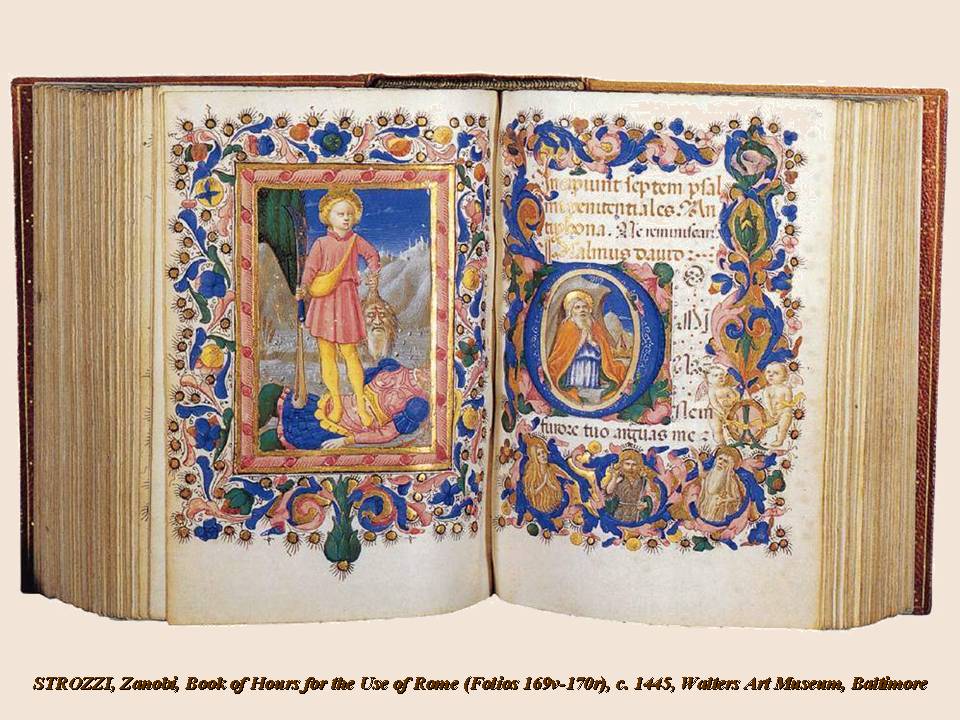 Incipiunt septem psal
mi penitentiales. An
tiphona. Ne reminiscari
Psalmus david :
D
Ne in
furore tuo arguas me :
STROZZI, Zanobi, Book of Hours for the Use of Rome (Folios 169v-170r), c. 1445, Walters Art Museum, Baltimore